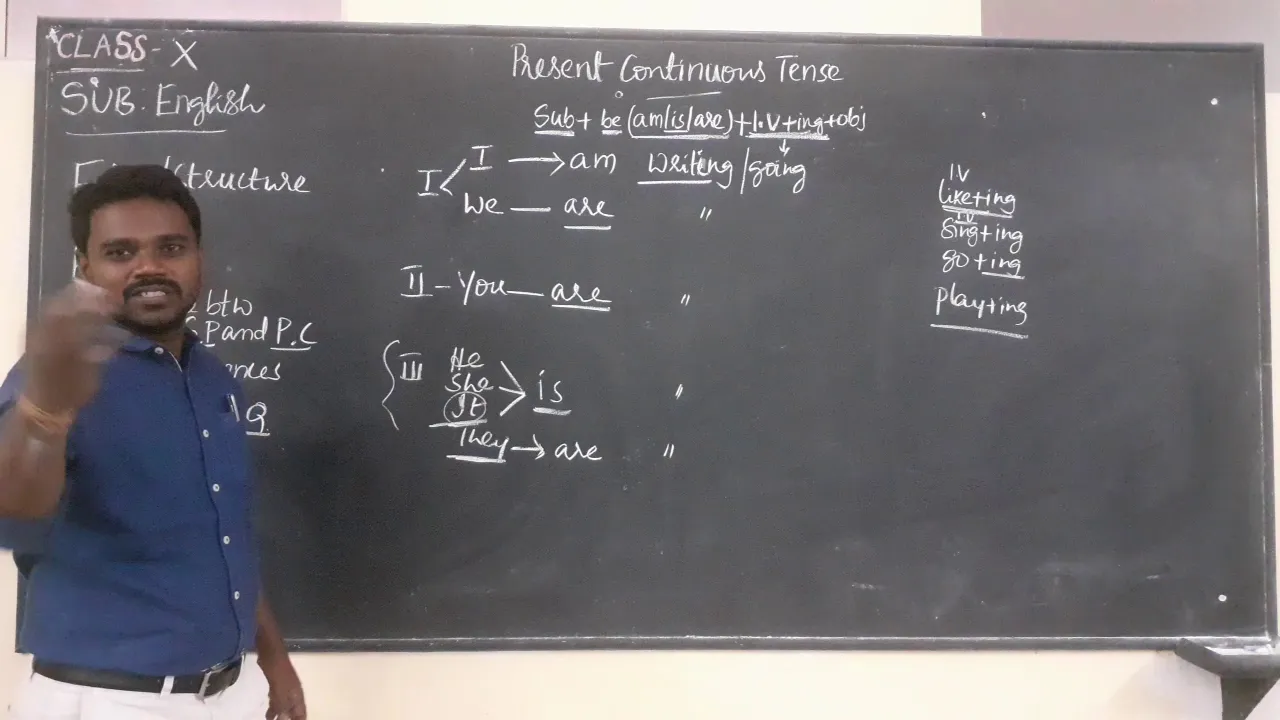 CLASS - X
SUB: English
Structure
btw
S.P and P.C
Q.
Present Continuous Tense
Sub + be (am/is/are) + I.V + ing + obj
I
I → am writing / going
We — are "
II - You — are "
III
He
She
It
is "
They → are "
IV
like + ing
IV
sing + ing
go + ing
play + ing